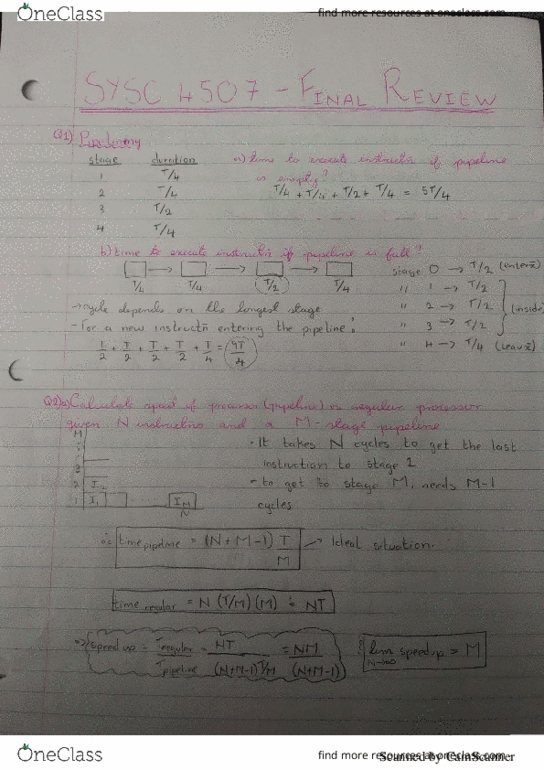 OneClass
find more resources at oneclass.com
SYSC 4507 - FINAL REVIEW
Q1) Pipelining
stage duration
1 T/4
2 T/4
3 T/2
4 T/4
a) time to execute instructn if pipeline
is empty?
T/4 + T/4 + T/2 + T/4 = 5T/4
b) time to execute instructn if pipeline is full?
T/4 T/4 T/2 T/4
stage 0 → T/2 (enters)
" 1 → T/2
" 2 → T/2 (inside)
" 3 → T/2
" 4 → T/4 (leaves)
→ cycle depends on the longest stage
- For a new instructn entering the pipeline:
T/2 + T/2 + T/2 + T/2 + T/4 = 9T/4
Q2)a) Calculate speed of processor (pipeline) vs regular processor
given N instructions and a M-stage pipeline
M
3
2 I2
1 I1 IM
N
• It takes N cycles to get the last
instruction to stage 1
- to get to stage M, needs M-1
cycles
∴ time pipeline = (N+M-1) T/M → Ideal situation.
time regular = N (T/M) (M) = NT
=> speed up = Tregular / Tpipeline = NT / (N+M-1) T/M = NM / (N+M-1)
lim N→∞ speedup = M
OneClass
find more resources at oneclass.com
Scanned by CamScanner